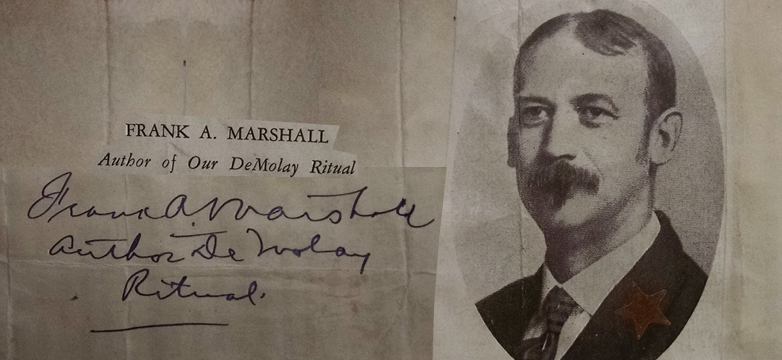 FRANK A. MARSHALL
Author of Our DeMolay Ritual
Frank A. Marshall
Author De Molay
Ritual.